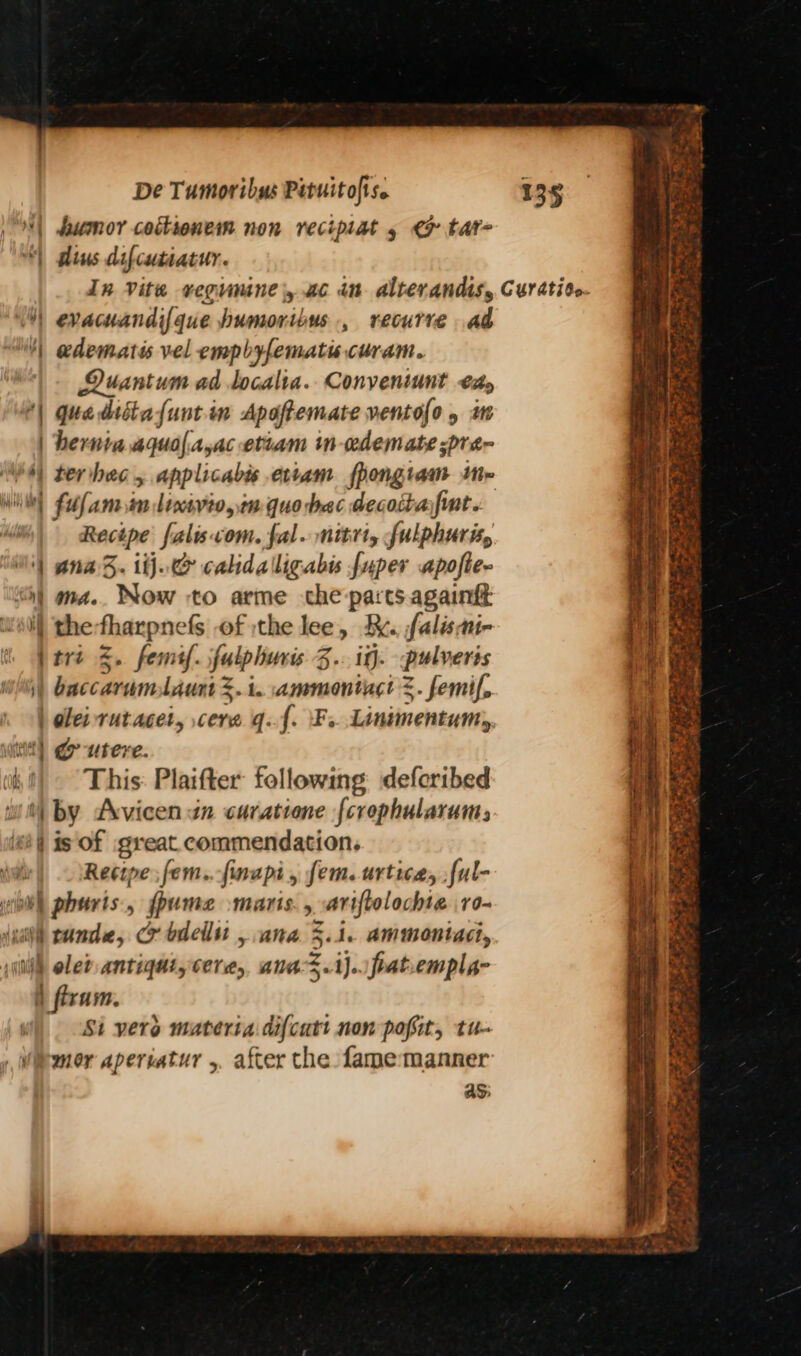 De Tumoribus Pituitoſis. 135
humor coctionem non recipiat, & tar-
dius diſcutiatur.
In vitæ regimine, ac in alterandis, Curatio.
evacuandiſque humoribus, recurre ad
ædematis vel emphyſematis curam.
Quantum ad localia. Conveniunt ea,
quæ dicta ſunt in Apoſtemate ventoſo, in
hernia aquoſa, ac etiam in ædemate; præ-
ter hæc, applicabis etiam ſpongiam in-
fuſam in lixivio, in quo hæc decocta ſint.
Recipe ſalis com. ſal. nitri, ſulphuris,
ana ʒ. iij. & calida ligabis ſuper apoſte-
ma. Now to arme the parts againſt
the ſharpneſs of the lee, ℞. ſalis ni-
tri ℥. ſemiſ. ſulphuris ʒ. iij. pulveris
baccarum lauri ℥. i. ammoniaci ℥. ſemiſ.
olei rutacei, ceræ q. ſ. F. Linimentum,
& utere.
This Plaiſter following deſcribed
by Avicen in curatione ſcrophularum,
is of great commendation.
Recipe ſem. ſinapi, ſem. urticæ, ſul-
phuris, ſpumæ maris, ariſtolochiæ ro-
tundæ, & bdellii, ana ℥. i. ammoniaci,
olei antiqui, ceræ, ana ℥. ij. fiat empla-
ſtrum.
Si verò materia diſcuti non poſſit, tu-
mor aperiatur, after the ſame manner
as